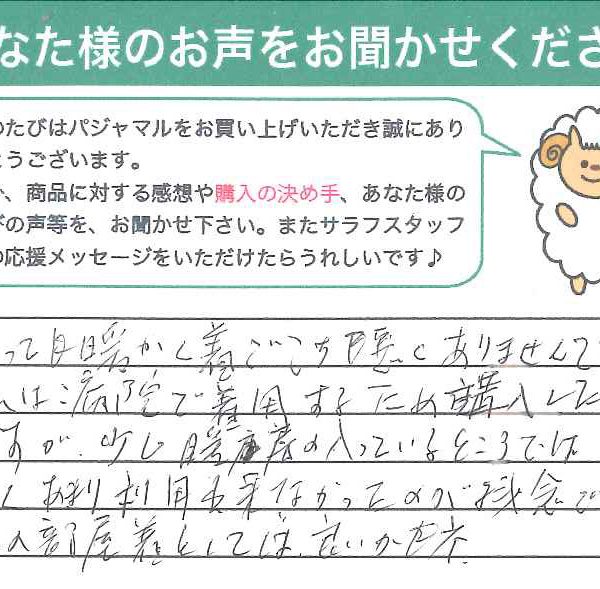 なた様のお声をお聞かせくださ
のたびはパジャマルをお買い上げいただき誠にあり
とうございます。
、商品に対する感想や購入の決め手、あなた様の
の声等を、お聞かせ下さい。またサラフスタッフ
の応援メッセージをいただけたらうれしいです♪
って暖かく着ごこち悪くありませんで
は病院で着用するため購入した
すが、少し暖房の入っているところでは
くあまり利用出来なかったのが残念で
の部屋着としては良いかと